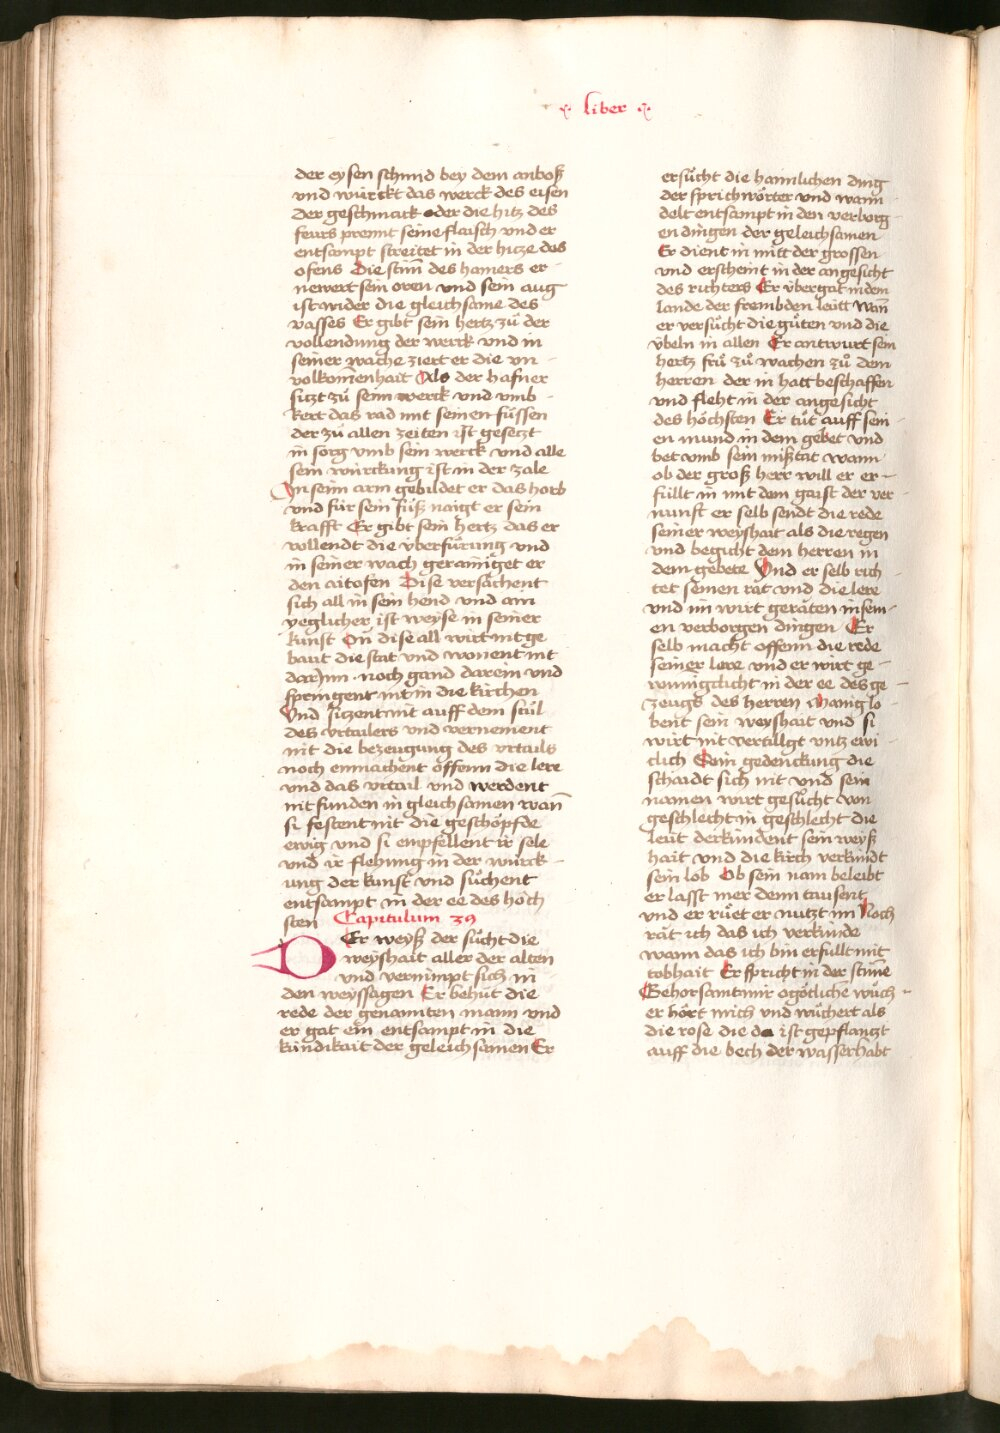 liber
der eysen schmid bey dem anboß
vnd würckt das werck des eisen
Der geschmack oder die hitz des
feurs prennt seine flaisch vnd er
entsampt streitet in der hicze des
ofens Die stim̄ des hamers er-
newert sein oren vnd sein aug
ist wider die gleichsame des
vasses Er gibt sein hertz zů der
vollendung der werck vnd in
seiner wache ziert er die vn-
volkom̄enhait Als der hafner
siczt zů seim werck vnd vmb-
kert das rad mit seinen füssen
der zů allen zeiten ist geseczt
in sorg vmb sein werck vnd alle
sein würckung ist in der zale
In seim arm gebildet er das horb
vnd für sein füß naigt er sein
krafft Er gibt sein hertz das er
vollendt die überfürung vnd
in seiner wach gerainiget er
den aitofen Dise versächent
sich all in sein hend vnd ain
yeglicher ist weyse in seiner
kunst On dise all wirt nit ge
baut die stat vnd wonent nit
darinn noch gand darein vnd
springent nit in die kirchen
Vnd siczent nit auff dem stůl
des vrtailers vnd vernement
nit die bezeugung des vrtails
noch enmachent offenn die lere
vnd das vrtail vnd werdent
nit funden in gleichsamen wan̄
si festent nit die geschöpfde
ewig vnd si empfellent ir sele
vnd ir flehung in der würck-
ung der kunst vnd sůchent
entsampt in der ee des höch
sten Capitulum 39
Der weyß der sůcht die
weyshait aller der alten
vnd vernimpt sich in
den weyssagen Er behüt die
rede der genannten mann vnd
er gat ein entsampt in die
kündikait der geleichsamen Er
ersůcht die hainlichen ding
der sprichwörter vnd wann
delt entsampt in den verborg-
en dingen der geleichsamen
Er dient in mitt der grossen
vnd erscheint in der angesicht
des richters Er übergat in dem
lande der frembden leütt wan̄
er versůcht die gůten vnd die
übeln in allen Er antwurt sein
hertz frů zů wachen zů dem
herren der in hatt beschaffen
vnd fleht in der angesicht
des höchsten Er tůt auff sein-
en mund in dem gebet vnd
bet vmb sein mißtat wann
ob der groß herr will er er-
füllt in mit dem gaist der ver-
nunft er selb sendt die rede
seiner weyshait als die regen
vnd begicht dem herren in
dem gebete Vnd er selb rich
tet seinen rat vnd die lere
vnd im wirt geraten in sein-
en verborgen dingen Er
selb macht offenn die rede
seiner lere vnd er wirt ge-
wunigclicht in der ee des ge-
zeugs des herren Manig lo
bent sein weyshait vnd si
wirt nit vertilgt vntz ewi
clich Sein gedenckung die
schaidt sich nit vnd sein
namen wirt gesůcht von
geschlecht in geschlecht die
leüt derkündent sein weyß
hait vnd die kirch verkündt
sein lob Ob sein nam beleibt
er lasst mer denn tausent
vnd er růet er nutzt im Noch
rät ich das ich verkünde
wann das ich bin erfullt mit
tobhait Er spricht in der stim̄e
Gehorsamt mir o götliche wůch-
er hört mich vnd wůchert als
die rose die da ist gepflanczt
auff die bech der wasser habt